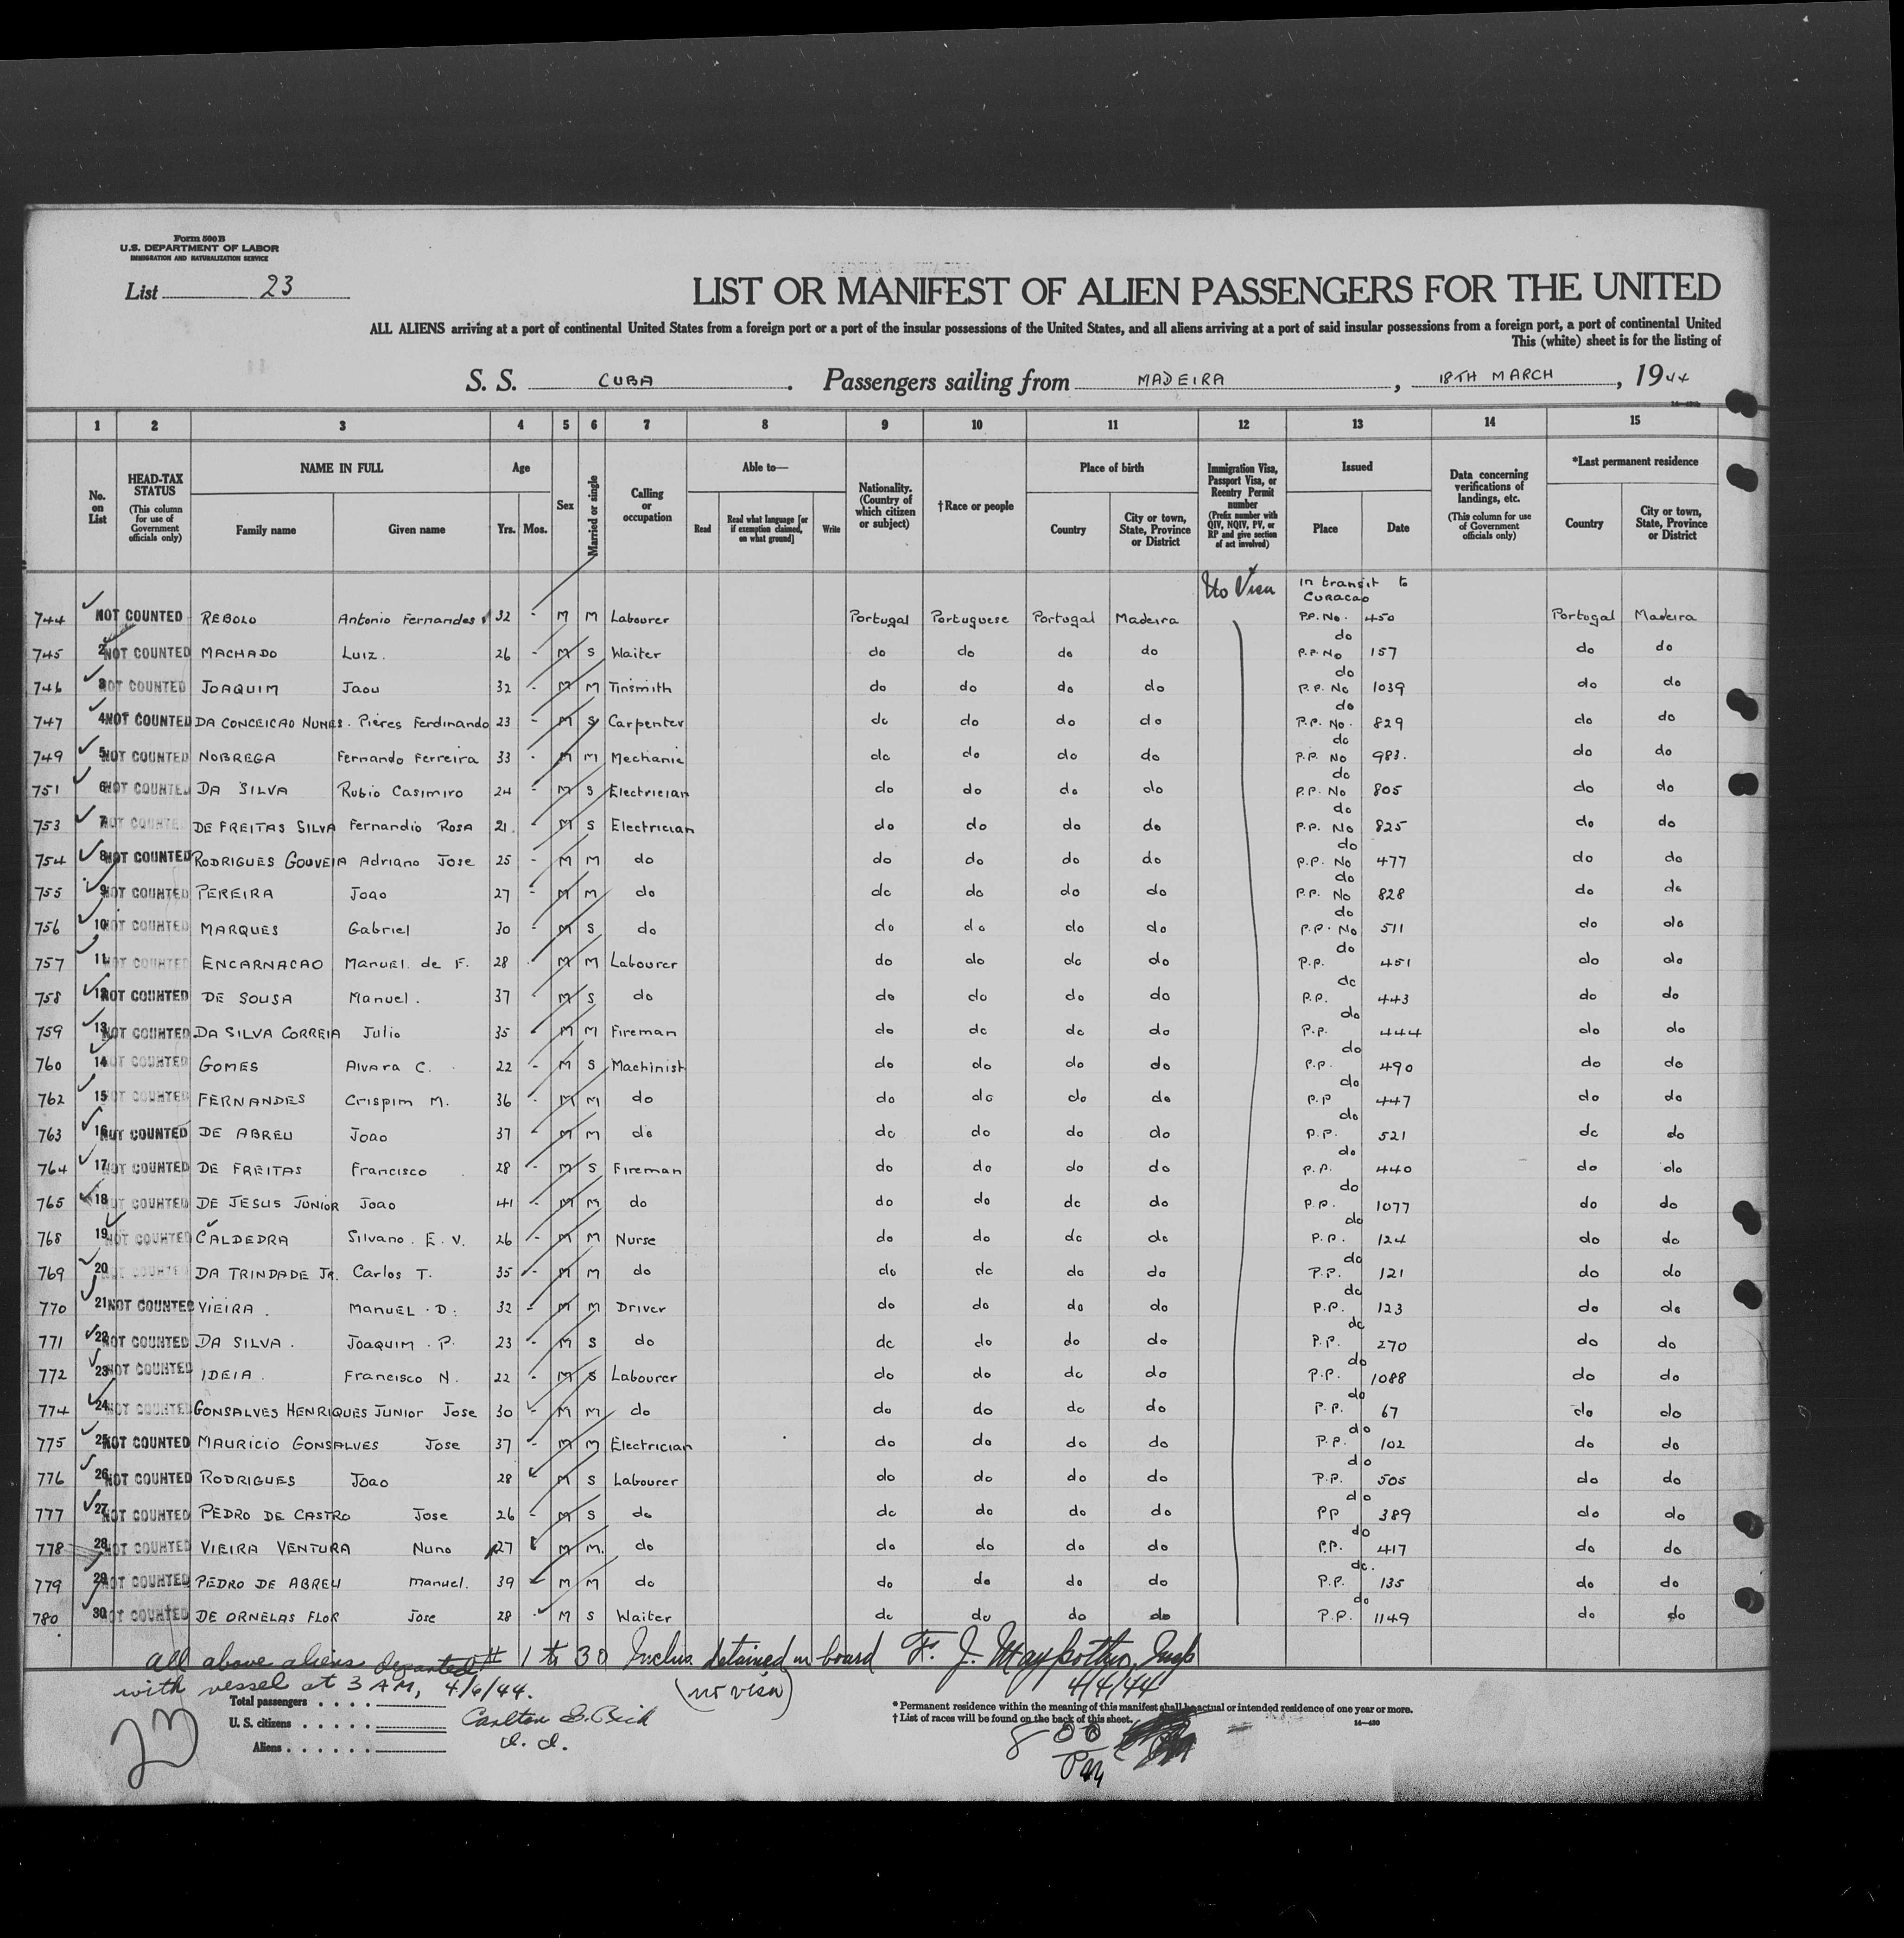 Form 500B
U.S. DEPARTMENT OF LABOR
IMMIGRATION AND NATURALIZATION SERVICE
List 23
LIST OR MANIFEST OF ALIEN PASSENGERS FOR THE UNITED
ALL ALIENS arriving at a port of continental United States from a foreign port or a port of the insular possessions of the United States, and all aliens arriving at a port of said insular possessions from a foreign port, a port of continental United
This (white) sheet is for the listing of
S. S. CUBA . Passengers sailing from MADEIRA , 18TH MARCH , 1944
1 2 3 4 5 6 7 8 9 10 11 12 13 14 15
No. on List
HEAD-TAX STATUS (This column for use of Government officials only)
NAME IN FULL Family name Given name
Age Yrs. Mos.
Sex
Married or single
Calling or occupation
Able to— Read Read what language [or if exemption claimed, on what ground] Write
Nationality. (Country of which citizen or subject)
†Race or people
Place of birth Country City or town, State, Province or District
Immigration Visa, Passport Visa, or Reentry Permit number (Prefix number with QIV, NQIV, PV, or RP and give section of act involved)
Issued Place Date
Data concerning verifications of landings, etc. (This column for use of Government officials only)
*Last permanent residence Country City or town, State, Province or District
No Visa In transit to Curacao
744 NOT COUNTED REBOLO Antonio Fernandes 32 - M M Labourer Portugal Portuguese Portugal Madeira P.P. No. 450 Portugal Madeira
745 2 NOT COUNTED MACHADO Luiz. 26 - M S Waiter do do do do do P.P. No 157 do do
746 3 NOT COUNTED JOAQUIM Jaou 32 - M M Tinsmith do do do do do P.P. No 1039 do do
747 4 NOT COUNTED DA CONCEICAO NUNES. Pieres Ferdinando 23 - M S Carpenter do do do do do P.P. No. 829 do do
749 5 NOT COUNTED NOBREGA Fernando Ferreira 33 - M M Mechanic do do do do do P.P. No 983. do do
751 6 NOT COUNTED DA SILVA Rubio Casimiro 24 - M S Electrician do do do do do P.P. No 805 do do
753 7 NOT COUNTED DE FREITAS SILVA Fernandio Rosa 21. M S Electrician do do do do do P.P. No 825 do do
754 8 NOT COUNTED RODRIGUES GOUVEIA Adriano Jose 25 - M M do do do do do do P.P. No 477 do do
755 9 NOT COUNTED PEREIRA Joao 27 - M M do do do do do do P.P. No 828 do do
756 10 NOT COUNTED MARQUES Gabriel 30 - M S do do do do do do P.P. No 511 do do
757 11 NOT COUNTED ENCARNACAO Manuel. de F. 28 M M Labourer do do do do do P.P. 451 do do
758 12 NOT COUNTED DE SOUSA Manuel. 37 M S do do do do do do P.P. 443 do do
759 13 NOT COUNTED DA SILVA CORREIA Julio 35 M M Fireman do do do do do P.P. 444 do do
760 14 NOT COUNTED GOMES Alvara C. 22 - M S Machinist do do do do do P.P. 490 do do
762 15 NOT COUNTED FERNANDES Crispim M. 36 - M M do do do do do do P.P 447 do do
763 16 NOT COUNTED DE ABREU Joao 37 M M do do do do do do P.P. 521 do do
764 17 NOT COUNTED DE FREITAS Francisco 28 - M S Fireman do do do do do P.P. 440 do do
765 18 NOT COUNTED DE JESUS JUNIOR Joao 41 - M M do do do do do do P.P. 1077 do do
768 19 NOT COUNTED CALDEDRA Silvano. E. V. 26 - M M Nurse do do do do do P.P. 124 do do
769 20 NOT COUNTED DA TRINDADE JR. Carlos T. 35 - M M do do do do do do P.P. 121 do do
770 21 NOT COUNTED VIEIRA. MANUEL. D. 32 - M M Driver do do do do do P.P. 123 do do
771 22 NOT COUNTED DA SILVA. JOAQUIM. P. 23 - M S do do do do do do P.P. 270 do do
772 23 NOT COUNTED IDEIA. Francisco N. 22 - M S Labourer do do do do do P.P. 1088 do do
774 24 NOT COUNTED GONSALVES HENRIQUES JUNIOR Jose 30 - M M do do do do do do P.P. 67 do do
775 25 NOT COUNTED MAURICIO GONSALVES Jose 37 - M M Electrician do do do do do P.P. 102 do do
776 26 NOT COUNTED RODRIGUES Joao 28 M S Labourer do do do do do P.P. 505 do do
777 27 NOT COUNTED PEDRO DE CASTRO Jose 26 - M S do do do do do do PP 389 do do
778 28 NOT COUNTED VIEIRA VENTURA Nuno 27 M M. do do do do do do P.P. 417 do do
779 29 NOT COUNTED PEDRO DE ABREU Manuel. 39 M M do do do do do do. P.P. 135 do do
780 30 NOT COUNTED DE ORNELAS FLOR Jose 28 M S Waiter do do do do do P.P. 1149 do do
# 1 to 30 Inclus. detained on board F. J. Insp
all above aliens departed (no visa) 4/4/44
with vessel at 3 AM, 4/6/44.
Total passengers
U.S. citizens Carlton
Aliens
23
* Permanent residence within the meaning of this manifest shall be actual or intended residence of one year or more.
† List of races will be found on the back of this sheet.
14—430